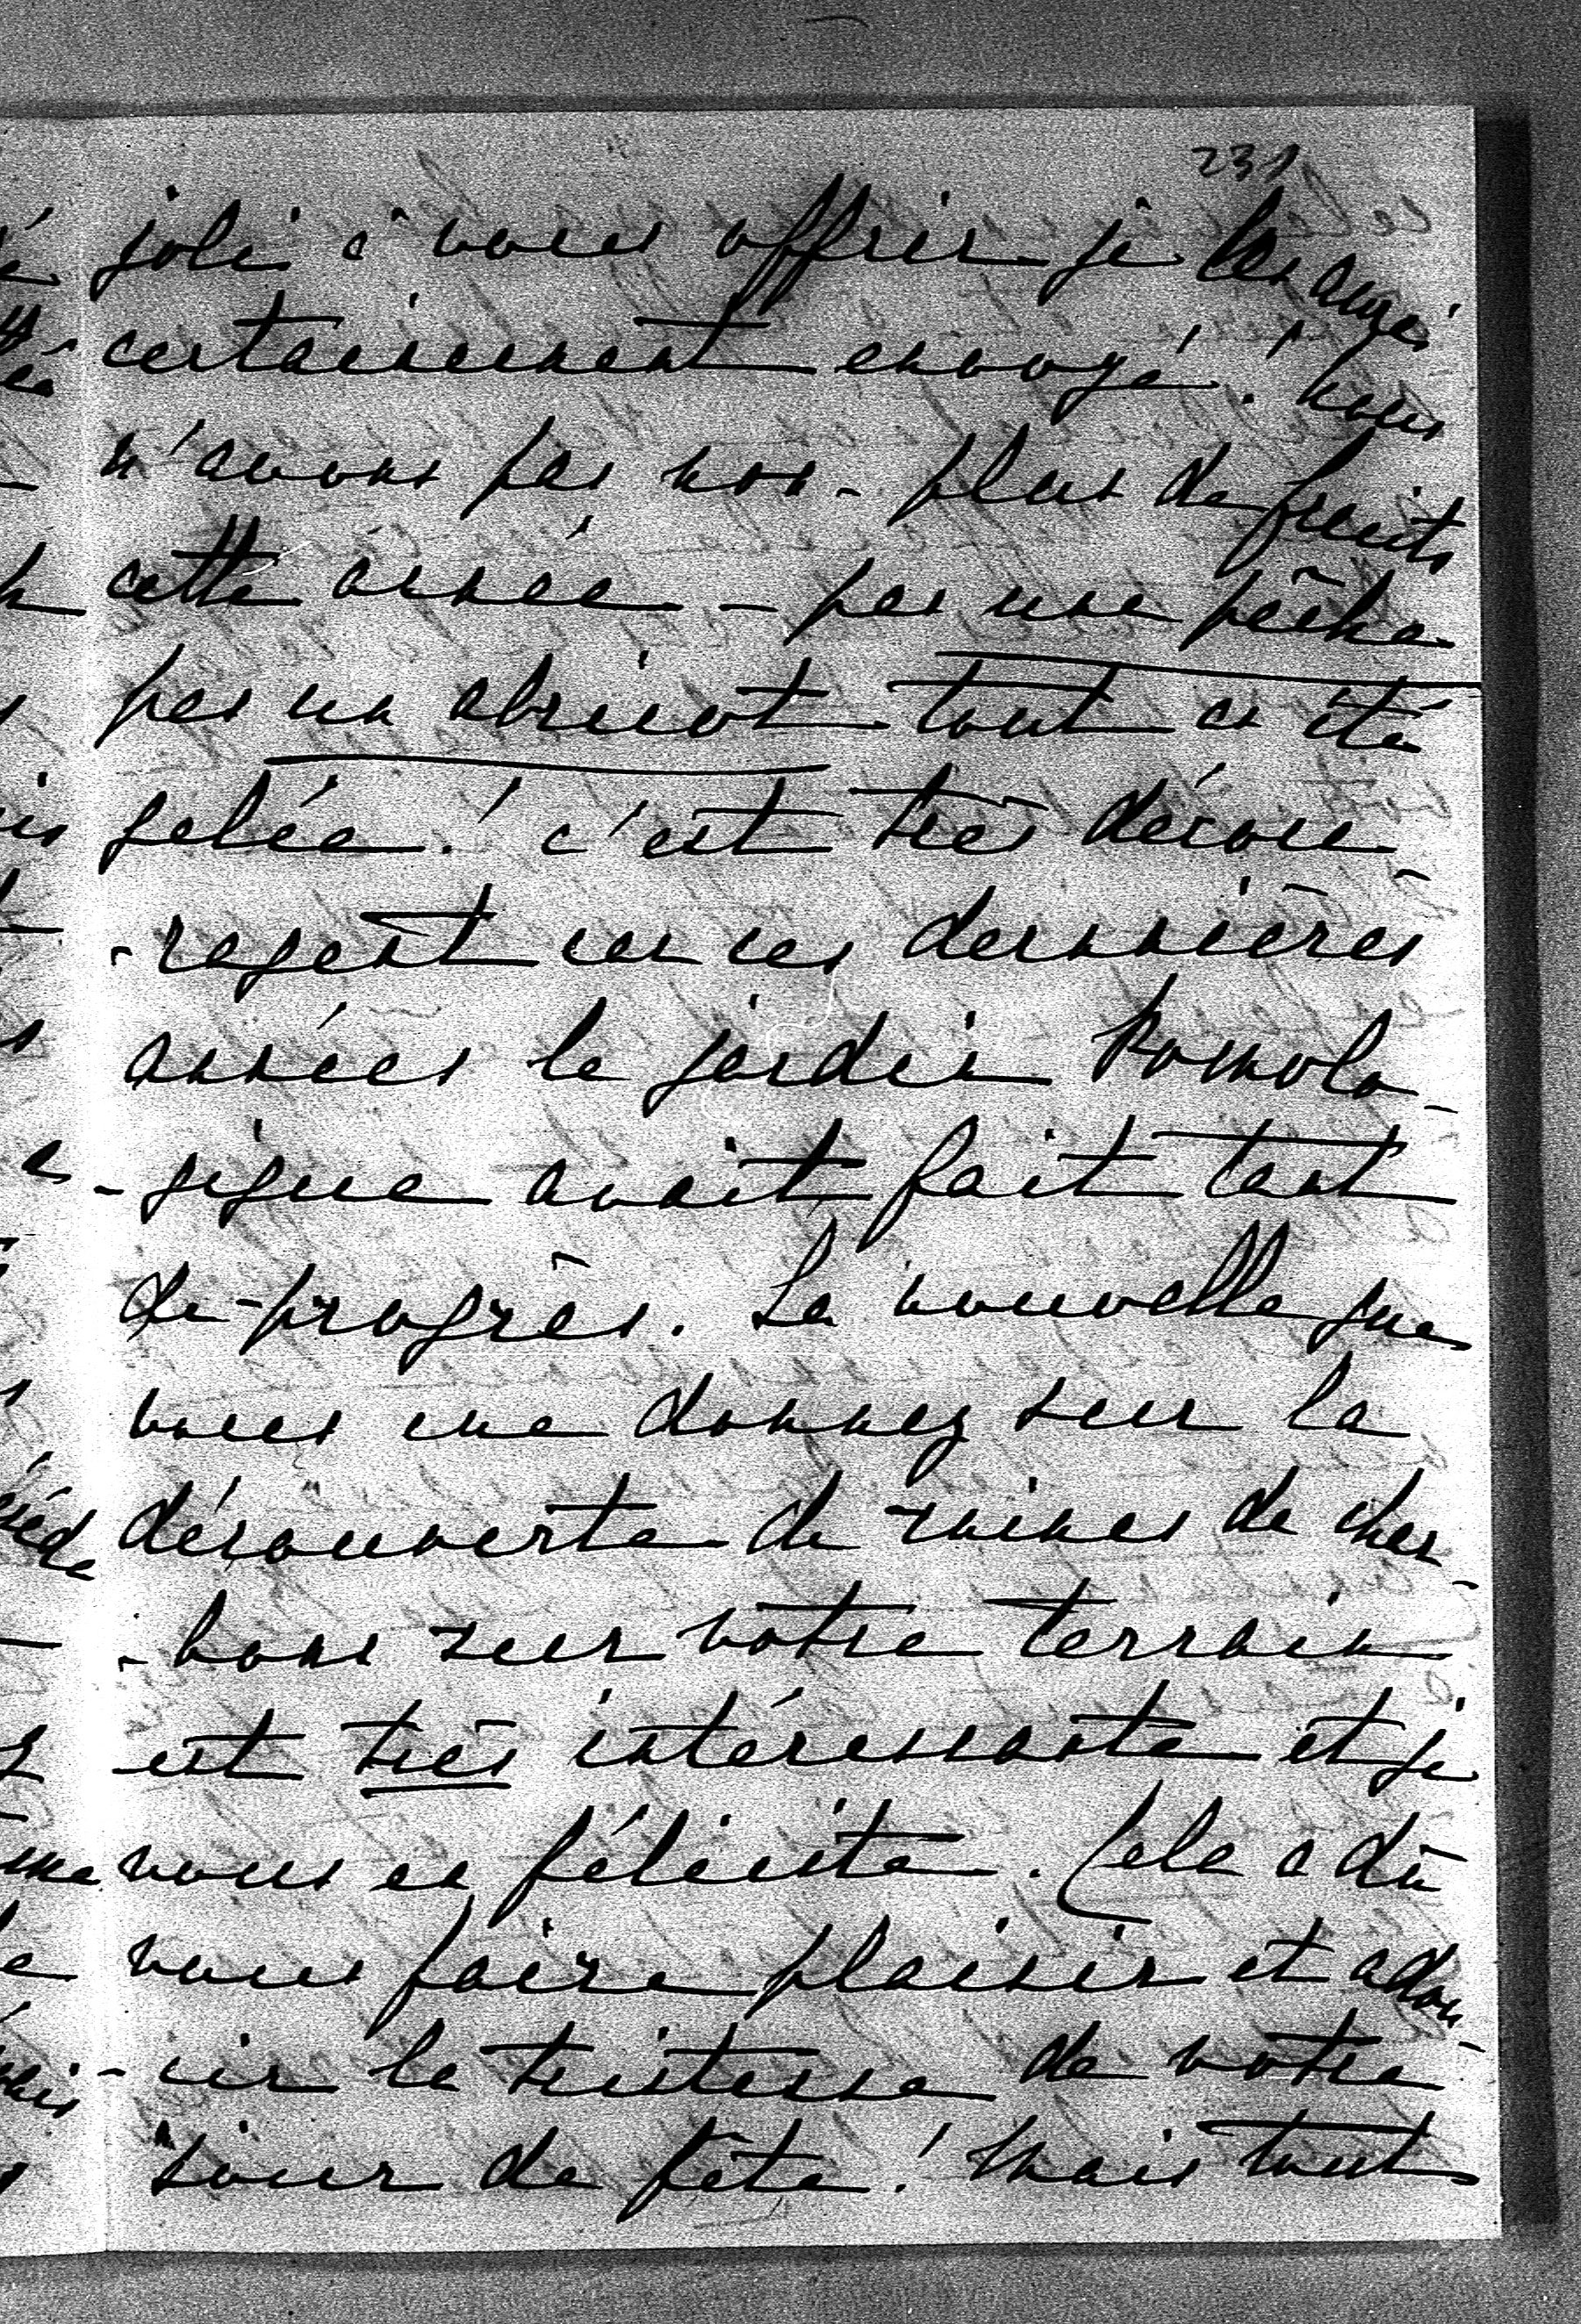 231
joli à vous offrir je les aurai
certainement envoyé! Nous
n'avons pas non-plus de fruits
cette année – pas une pêche
pas un abricot tout a été
gelée! c'est très décou-
-ragent car ces dernières
années le jardin Pomolo-
-gique avait fait tant
de-progrès. La nouvelle que
vous me donnez sur la
découverte de mines de char-
-bons sur votre terrain
est très intéressante et je
vous en félicite. Cela a dû
vous faire plaisir et adou-
-cir la tristesse de votre
jour de fête! Mais tout